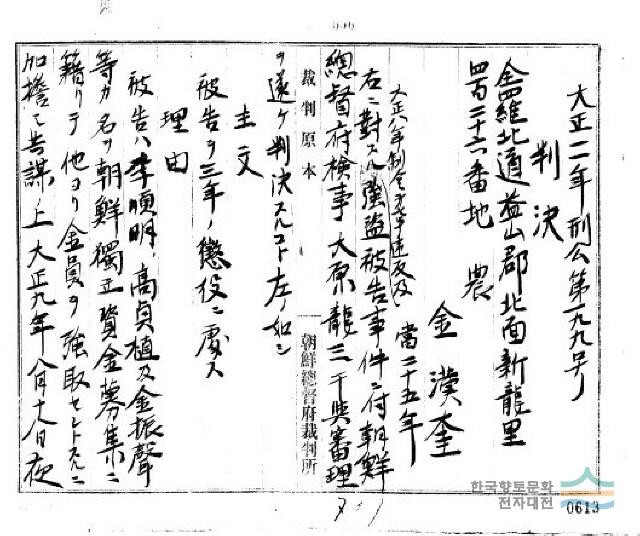 大正一二年刑公第一九九号ノ
判決
全羅北道益山郡北面新龍里
四百二十六番地 農
金漢奎
當二十五年
大正八年制令第七号違反及
右ニ對スル強盗被告事件ニ付朝鮮
總督府検事大原龍三干與審理
ヲ遂ケ判決スルコト左ノ如シ
主文
被告ヲ三年ノ懲役ニ處ス
理由
被告ハ李順明、高貞植及金振聲
等カ名ヲ朝鮮獨立資金募集ニ
籍リテ他ヨリ金員ヲ強取セントスルニ
加擔シ共謀ノ上大正九年八月十八日夜
裁判原本
朝鮮總督府裁判所
한국향토문화
전자대전
0613